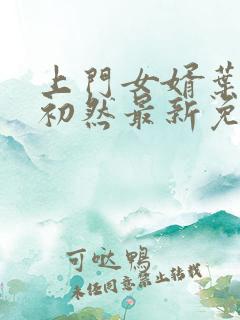 上門女婿葉
初然最新免
可哒鴨
未经同意禁止转载